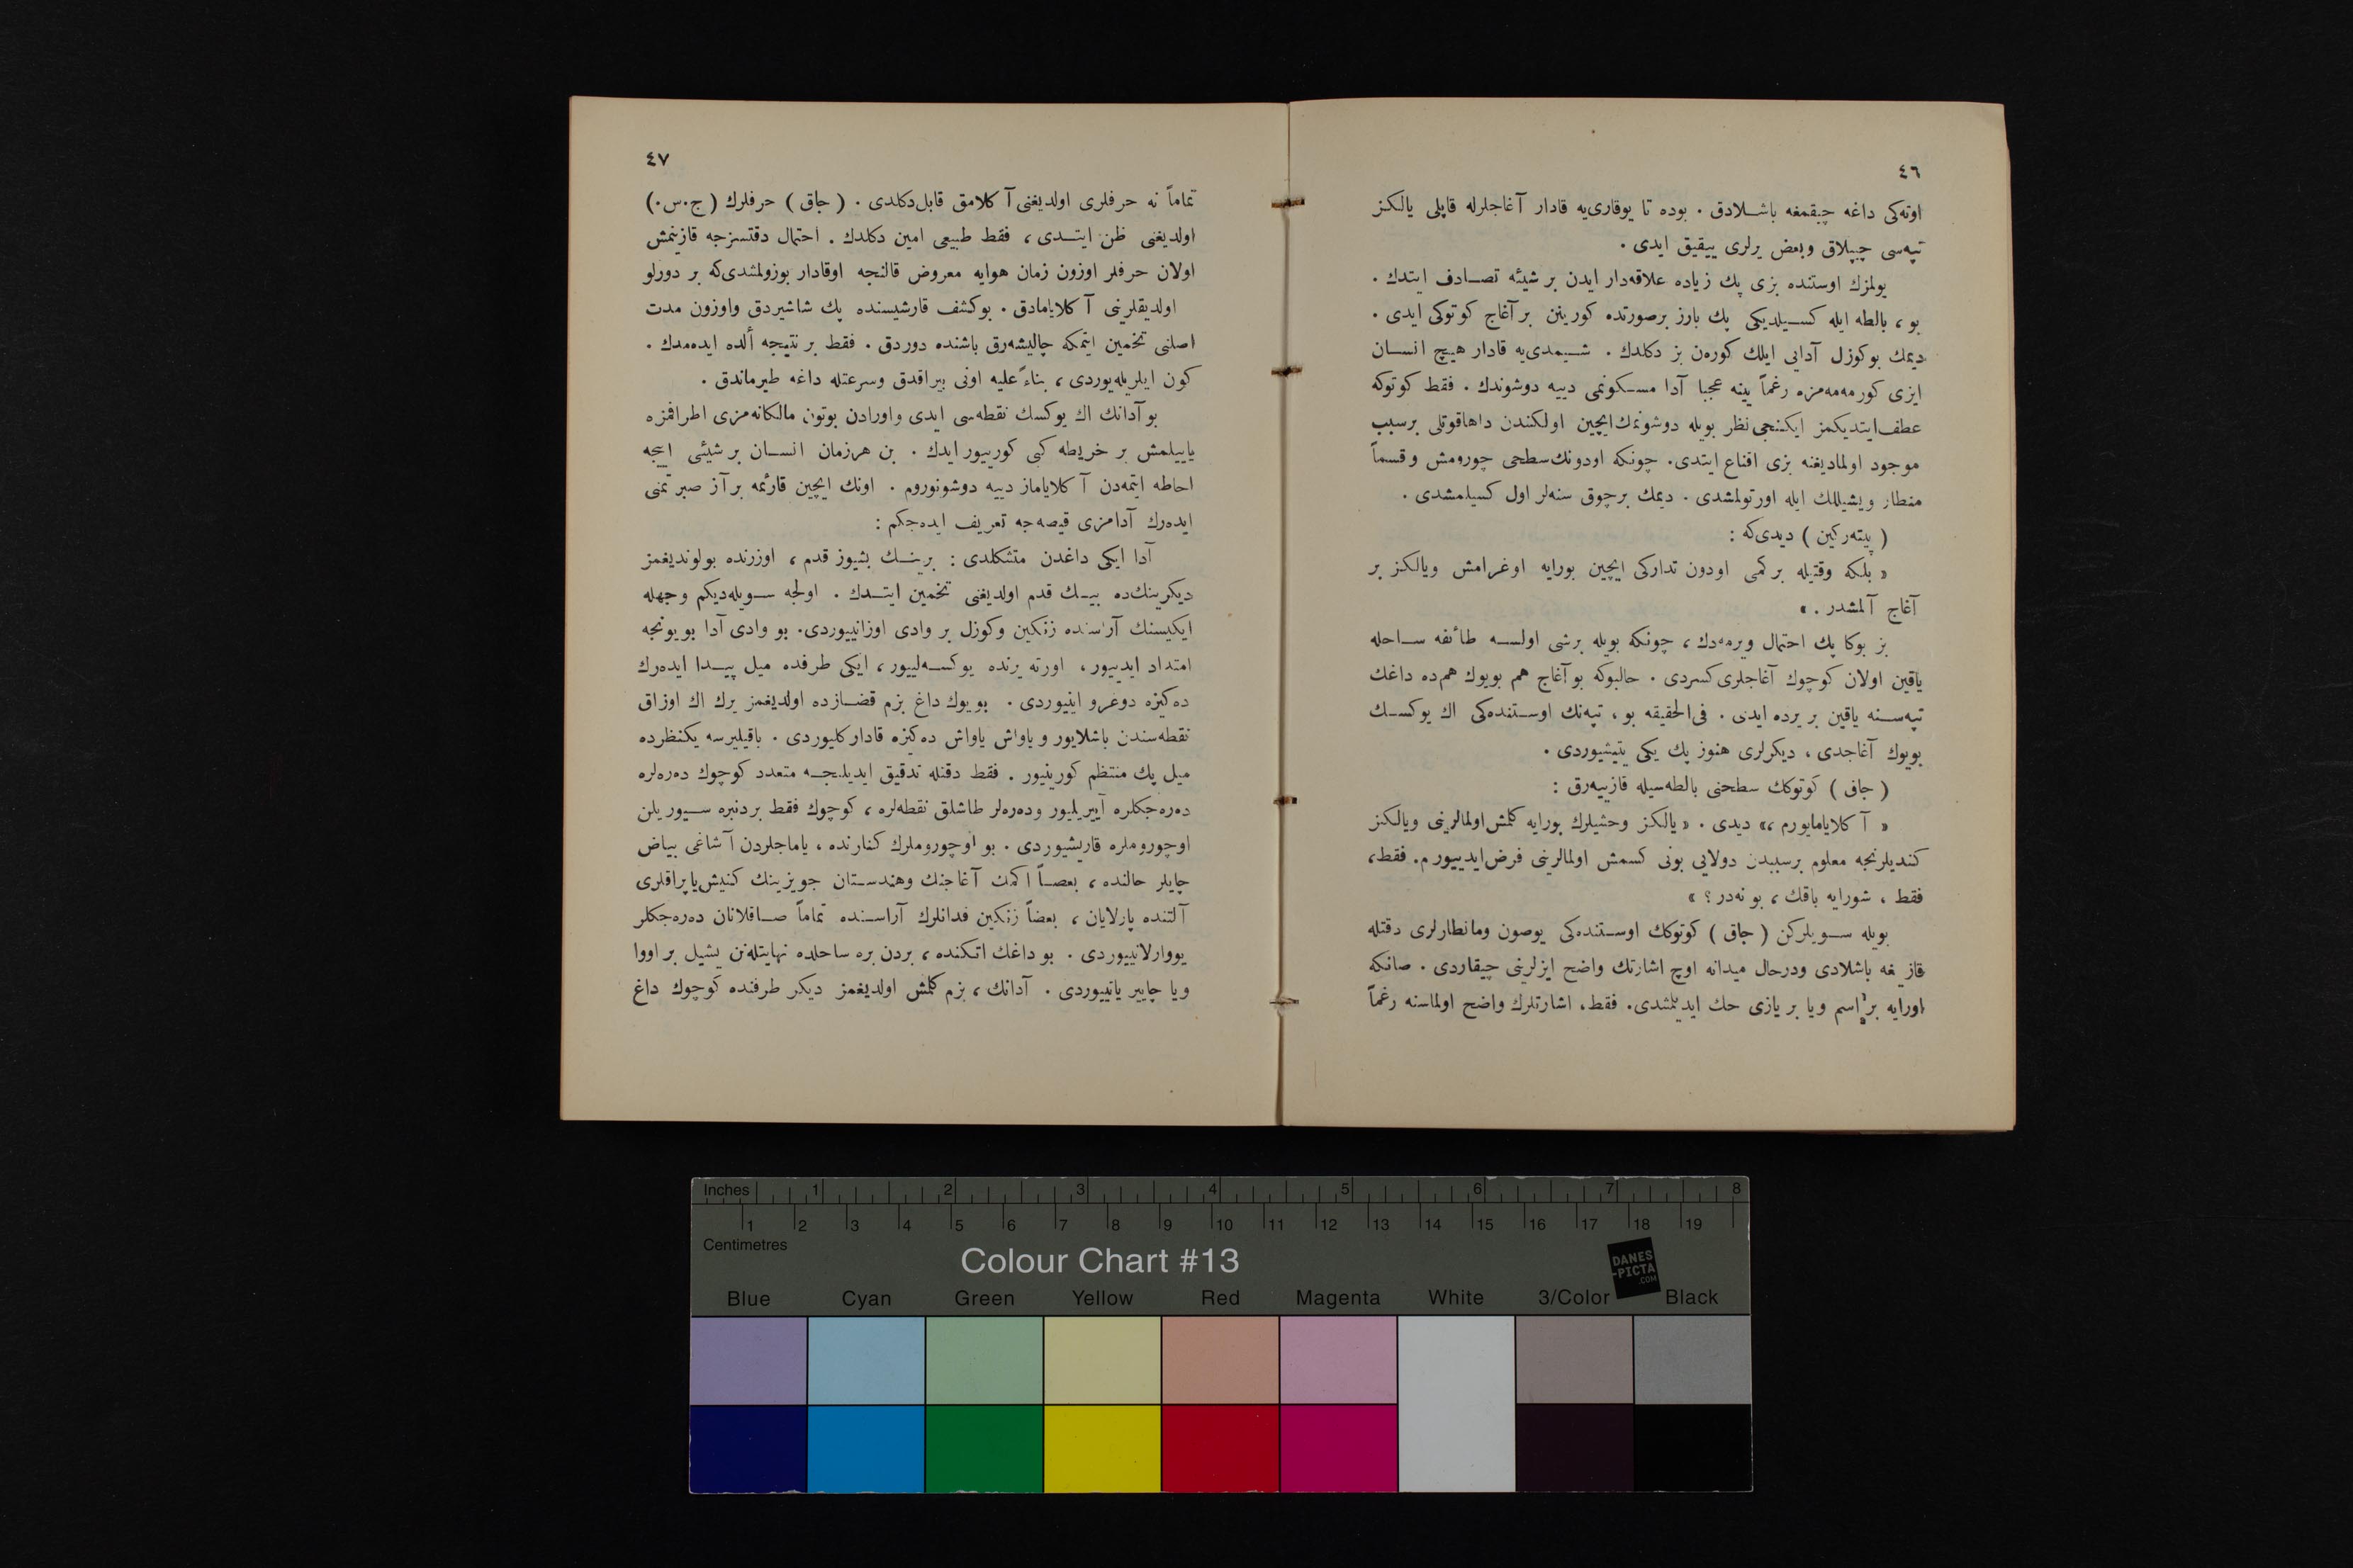 ٤٦
اوته‌كی داغه چیقمغه باشلادق . بوده تا یوقاری‌یه قادار آغاجلرله قاپلی یالكز
تپه‌سی چپپلاق وبعض یرلری ییقیق ایدی .
یولمزك اوستنده بزی پك زیاده علاقه‌دار ایدن بر شیئه تصادف ایتدك .
بو ، بالطه ایله كسیلدیكی پك بارز برصورتده كورینن بر آغاج كوتوكی ایدی .
دیمك بوكوزل آدایی ایلك كوره‌ن بز دكلدك . شیمدی‌یه قادار هیچ انسان
ایزی كورمه‌مه‌مزه رغماً یینه عجبا آدا مسكونمی دییه دوشوندك . فقط كوتوكه
عطف‌ایتدیكمز ایكنجی نظر بویله دوشونمك‌ایچین اولكندن داهاقوتلی برسبب
موجود اولمادیغنه بزی اقناع ایتدی. چونكه اودونك‌سطحی چورومش وقسماً
منطار ویشیللك ایله اورتولمشدی . دیمك برچوق سنه‌لر اول كسیلمشدی .
( پیته‌ركین ) دیدی‌كه :
« بلكه وقتیله بركمی اودون تداركی ایچین بورایه اوغرامش ویالكز بر
آغاج آلمشدر . »
بز بوكا پك احتمال ویرمه‌دك ، چونكه بویله برشی اولسه طائفه ساحله
یاقین اولان كوچوك آغاجلری كسردی . حالبوكه بو آغاج هم بویوك هم‌ده داغك
تپه‌سنه یاقین بر یرده ایدی . فی‌الحقیقه بو ، تپه‌نك اوستنده‌كی اك یوكسك
بویوك آغاجدی ، دیكرلری هنوز پك یكی یتیشیوردی .
( جاق ) كوتوكك سطحنی بالطه‌سیله قازییه‌رق :
« آكلایامایورم ،» دیدی . « یالكز وحشیلرك بورایه كلمش‌اولمالرینی ویالكز
كندیلرنجه معلوم برسببدن دولایی بونی كسمش اولمالرینی فرض‌ایدییورم. فقط،
فقط ، شورایه باقك ، بو نه‌در ؟ »
بویله سویلركن ( جاق ) كوتوكك اوستنده‌كی یوصون ومانطارلری دقتله
قازیغه باشلادی ودرحال میدانه اوچ اشارتك واضح ایزلرینی چیقاردی . صانكه
اورایه بر اسم ویا بر یازی حك ایدیلمشدی. فقط، اشارتلرك واضح اولماسنه رغماً
٤٧
تماماً نه حرفلری اولدیغنی آكلامق قابل‌دكلدی . ( جاق ) حرفلرك (ج.س.)
اولدیغنی ظن ایتدی ، فقط طبیعی امین دكلدك . احتمال دقتسزجه قازینمش
اولان حرفلر اوزون زمان هوایه معروض قالنجه اوقادار بوزولمشدی‌كه بر دورلو
اولدیقلرینی آكلایامادق . بوكشف قارشیسنده پك شاشیردق واوزون مدت
اصلنی تخمین ایتمكه چالیشه‌رق باشنده دوردق . فقط بر نتیجه ألده ایده‌مدك .
كون ایلریله‌یوردی ، بناءً علیه اونی بیراقدق وسرعتله داغه طیرماندق .
بو آدانك اك یوكسك نقطه‌سی ایدی واورادن بوتون مالكانه‌مزی اطرافمزه
یاییلمش بر خریطه كبی كورییور ایدك . بن هرزمان انسان بر شیئی اییجه
احاطه ایتمه‌دن آكلایاماز دییه دوشونورم . اونك ایچین قارئمه بر آز صبر تمنی
ایده‌رك آدامزی قیصه‌جه تعریف ایده‌جكم :
آدا ایكی داغدن متشكلدی : برینك بشیوز قدم ، اوزرنده بولوندیغمز
دیكرینك‌ده بیك قدم اولدیغنی تخمین ایتدك . اولجه سویله‌دیكم وجهله
ایكیسنك آراسنده زنكین وكوزل بر وادی اوزانییوردی. بو وادی آدا بویونجه
امتداد ایدییور ، اورته یرنده یوكسه‌لییور ، ایكی طرفده میل پیدا ایده‌رك
ده‌كیزه دوغرو اینیوردی . بویوك داغ بزم قضازده اولدیغمز یرك اك اوزاق
نقطه‌سندن باشلایور ویاواش یاواش ده‌كیزه قادار كلیوردی . باقیلیرسه یكنظرده
میل پك منتظم كورینیور . فقط دقتله تدقیق ایدیلنجه متعدد كوچوك ده‌ره‌لره
ده‌ره‌جكلره آییریلیور وده‌ره‌لر طاشلق نقطه‌لره ، كوچوك فقط بردنبره سیوریلن
اوچوروملره قاریشیوردی . بو اوچوروملرك كنارنده ، یاماجلردن آشاغی بیاض
چایلر حالنده ، بعضاً اكمك آغاجنك وهندستان جویزینك كنیش‌یاپراقلری
آلتنده پارلایان ، بعضاً زنكین فدانلرك آراسنده تماماً صاقلانان ده‌ره‌جكلر
یووارلانییوردی . بو داغك اتكنده ، بردن بره ساحلده نهایتلنن یشیل بر اووا
ویا چاییر یاتییوردی . آدانك ، بزم كلمش اولدیغمز دیكر طرفنده كوچوك داغ
Inches 1 2 3 4 5 6 7 8
1 2 3 4 5 6 7 8 9 10 11 12 13 14 15 16 17 18 19
Centimetres
Colour Chart #13
DANES
-PICTA
.COM
Blue Cyan Green Yellow Red Magenta White 3/Color Black